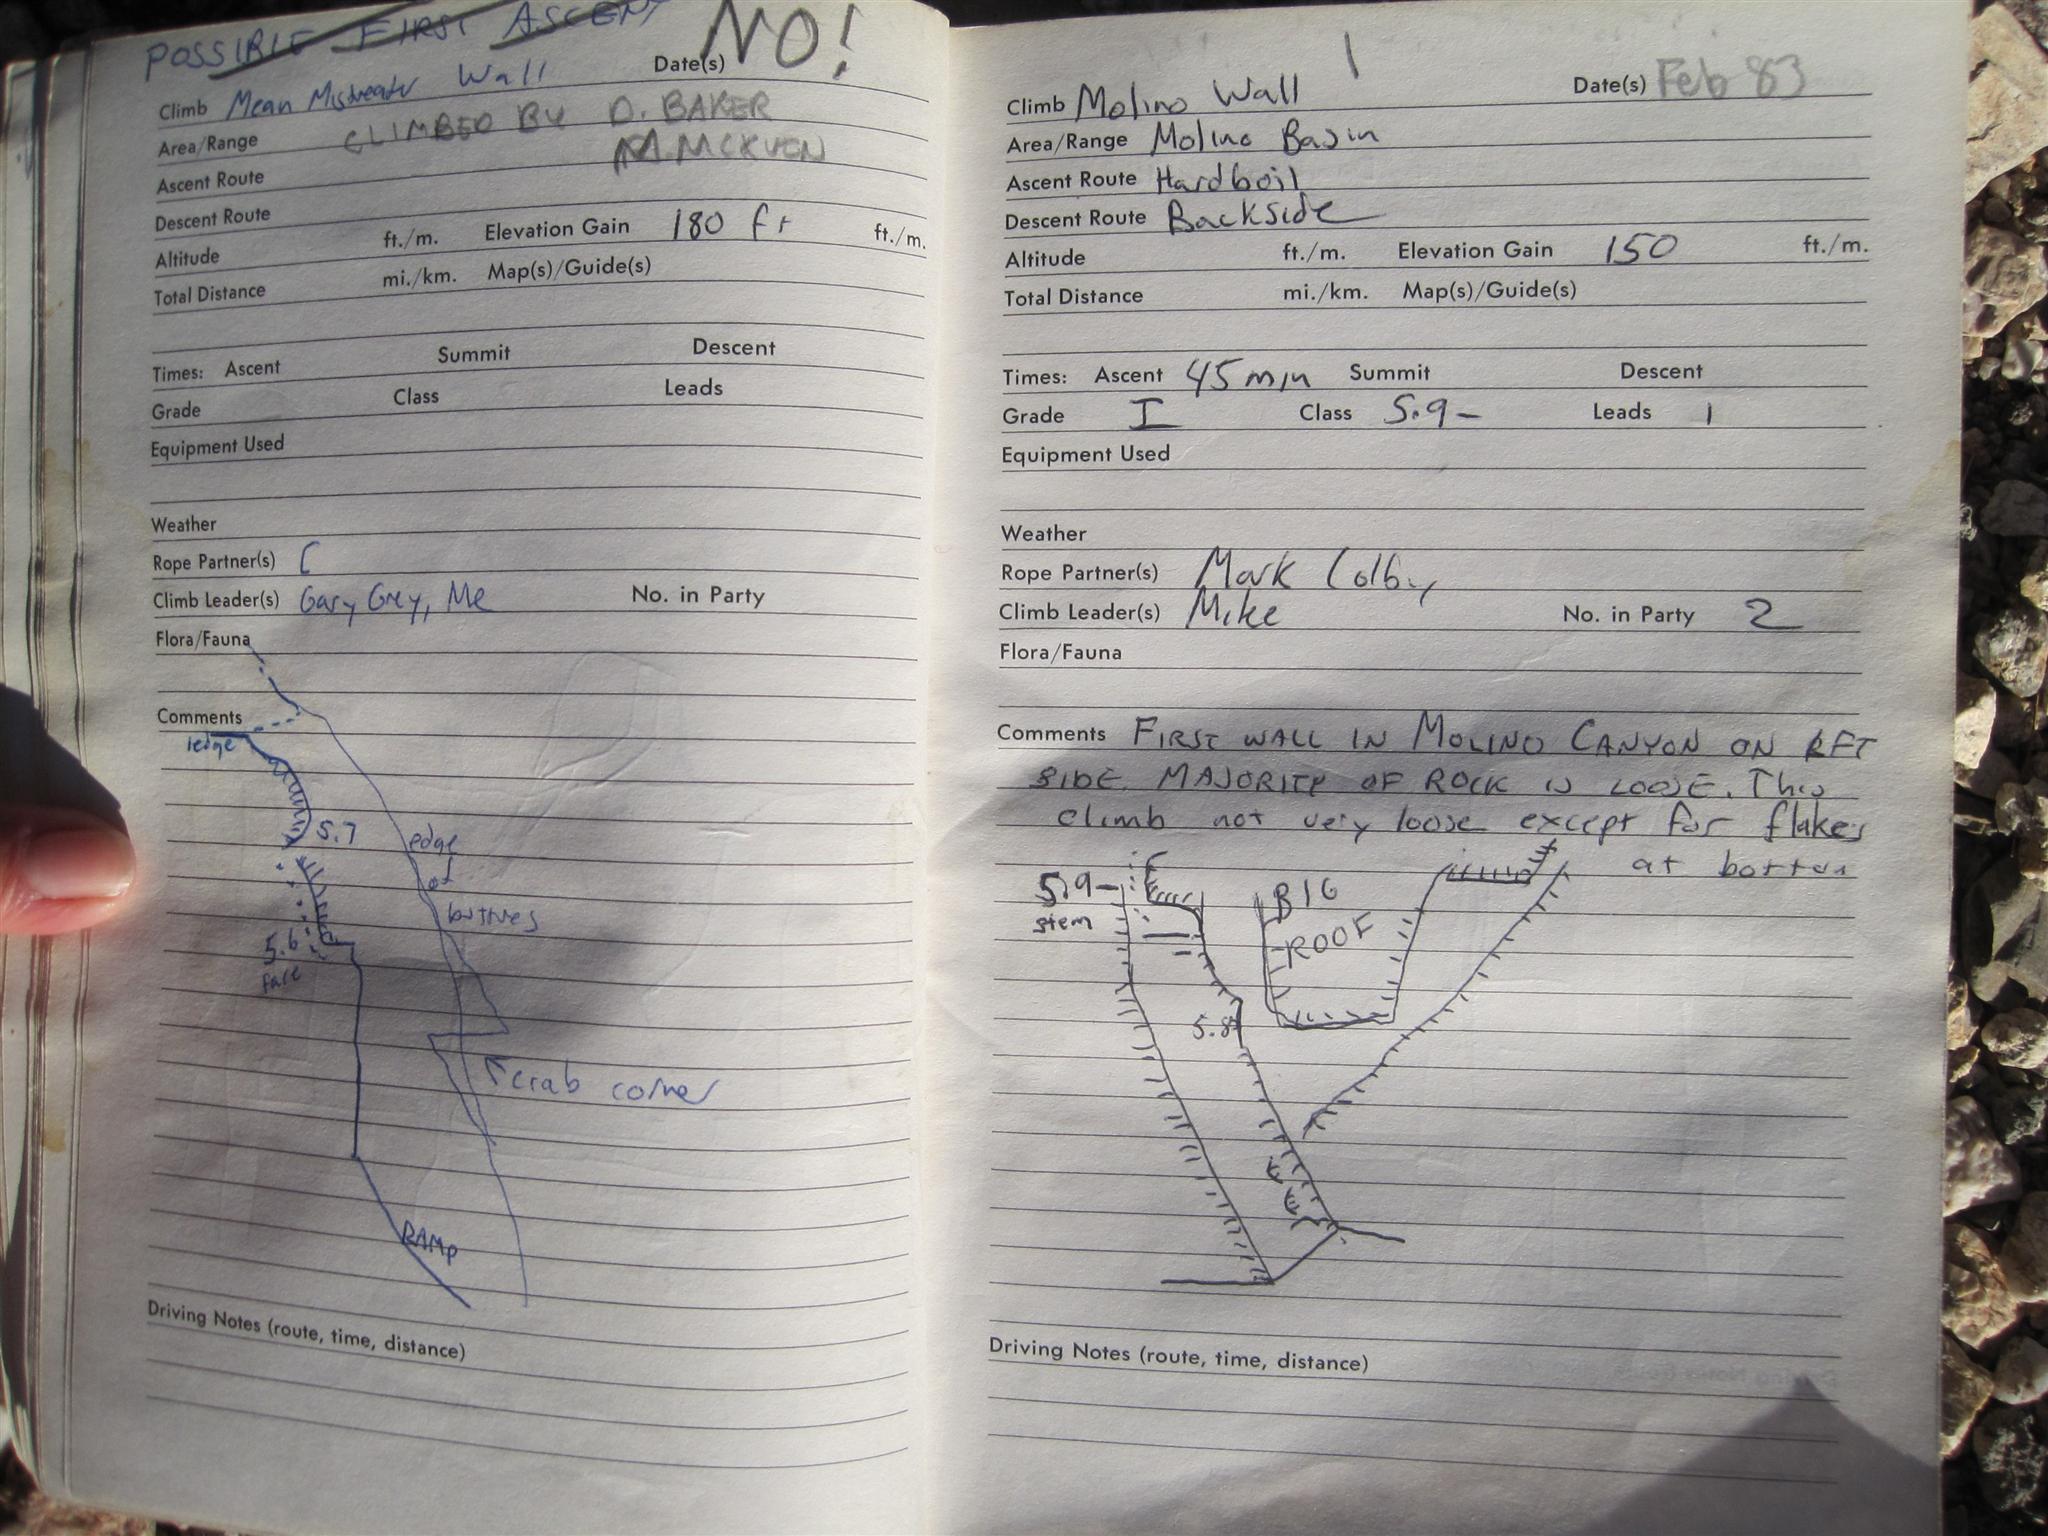 POSSIBLE FIRST ASCENT NO!
Date(s)
Climb Mean Mistreater Wall
Area/Range CLIMBED BY D. BAKER
M. MCKUEN
Ascent Route
Descent Route
Altitude ft./m. Elevation Gain 180 ft ft./m.
Total Distance mi./km. Map(s)/Guide(s)
Times: Ascent Summit Descent
Grade Class Leads
Equipment Used
Weather
Rope Partner(s) C
Climb Leader(s) Gary Grey, Me No. in Party
Flora/Fauna
Comments
ledge
5.7
edge
of
5.6
face
crab corner
RAMP
Driving Notes (route, time, distance)
1
Climb Molino Wall Date(s) Feb 83
Area/Range Molino Basin
Ascent Route Hardboil
Descent Route Backside
Altitude ft./m. Elevation Gain 150 ft./m.
Total Distance mi./km. Map(s)/Guide(s)
Times: Ascent 45 min Summit Descent
Grade I Class 5.9- Leads 1
Equipment Used
Weather
Rope Partner(s) Mark Colby
Climb Leader(s) Mike No. in Party 2
Flora/Fauna
Comments FIRST WALL IN MOLINO CANYON ON LFT
SIDE. MAJORITY OF ROCK IS LOOSE. This
climb not very loose except for flakes
at bottom
5.9-
stem
BIG
ROOF
5.8
Driving Notes (route, time, distance)